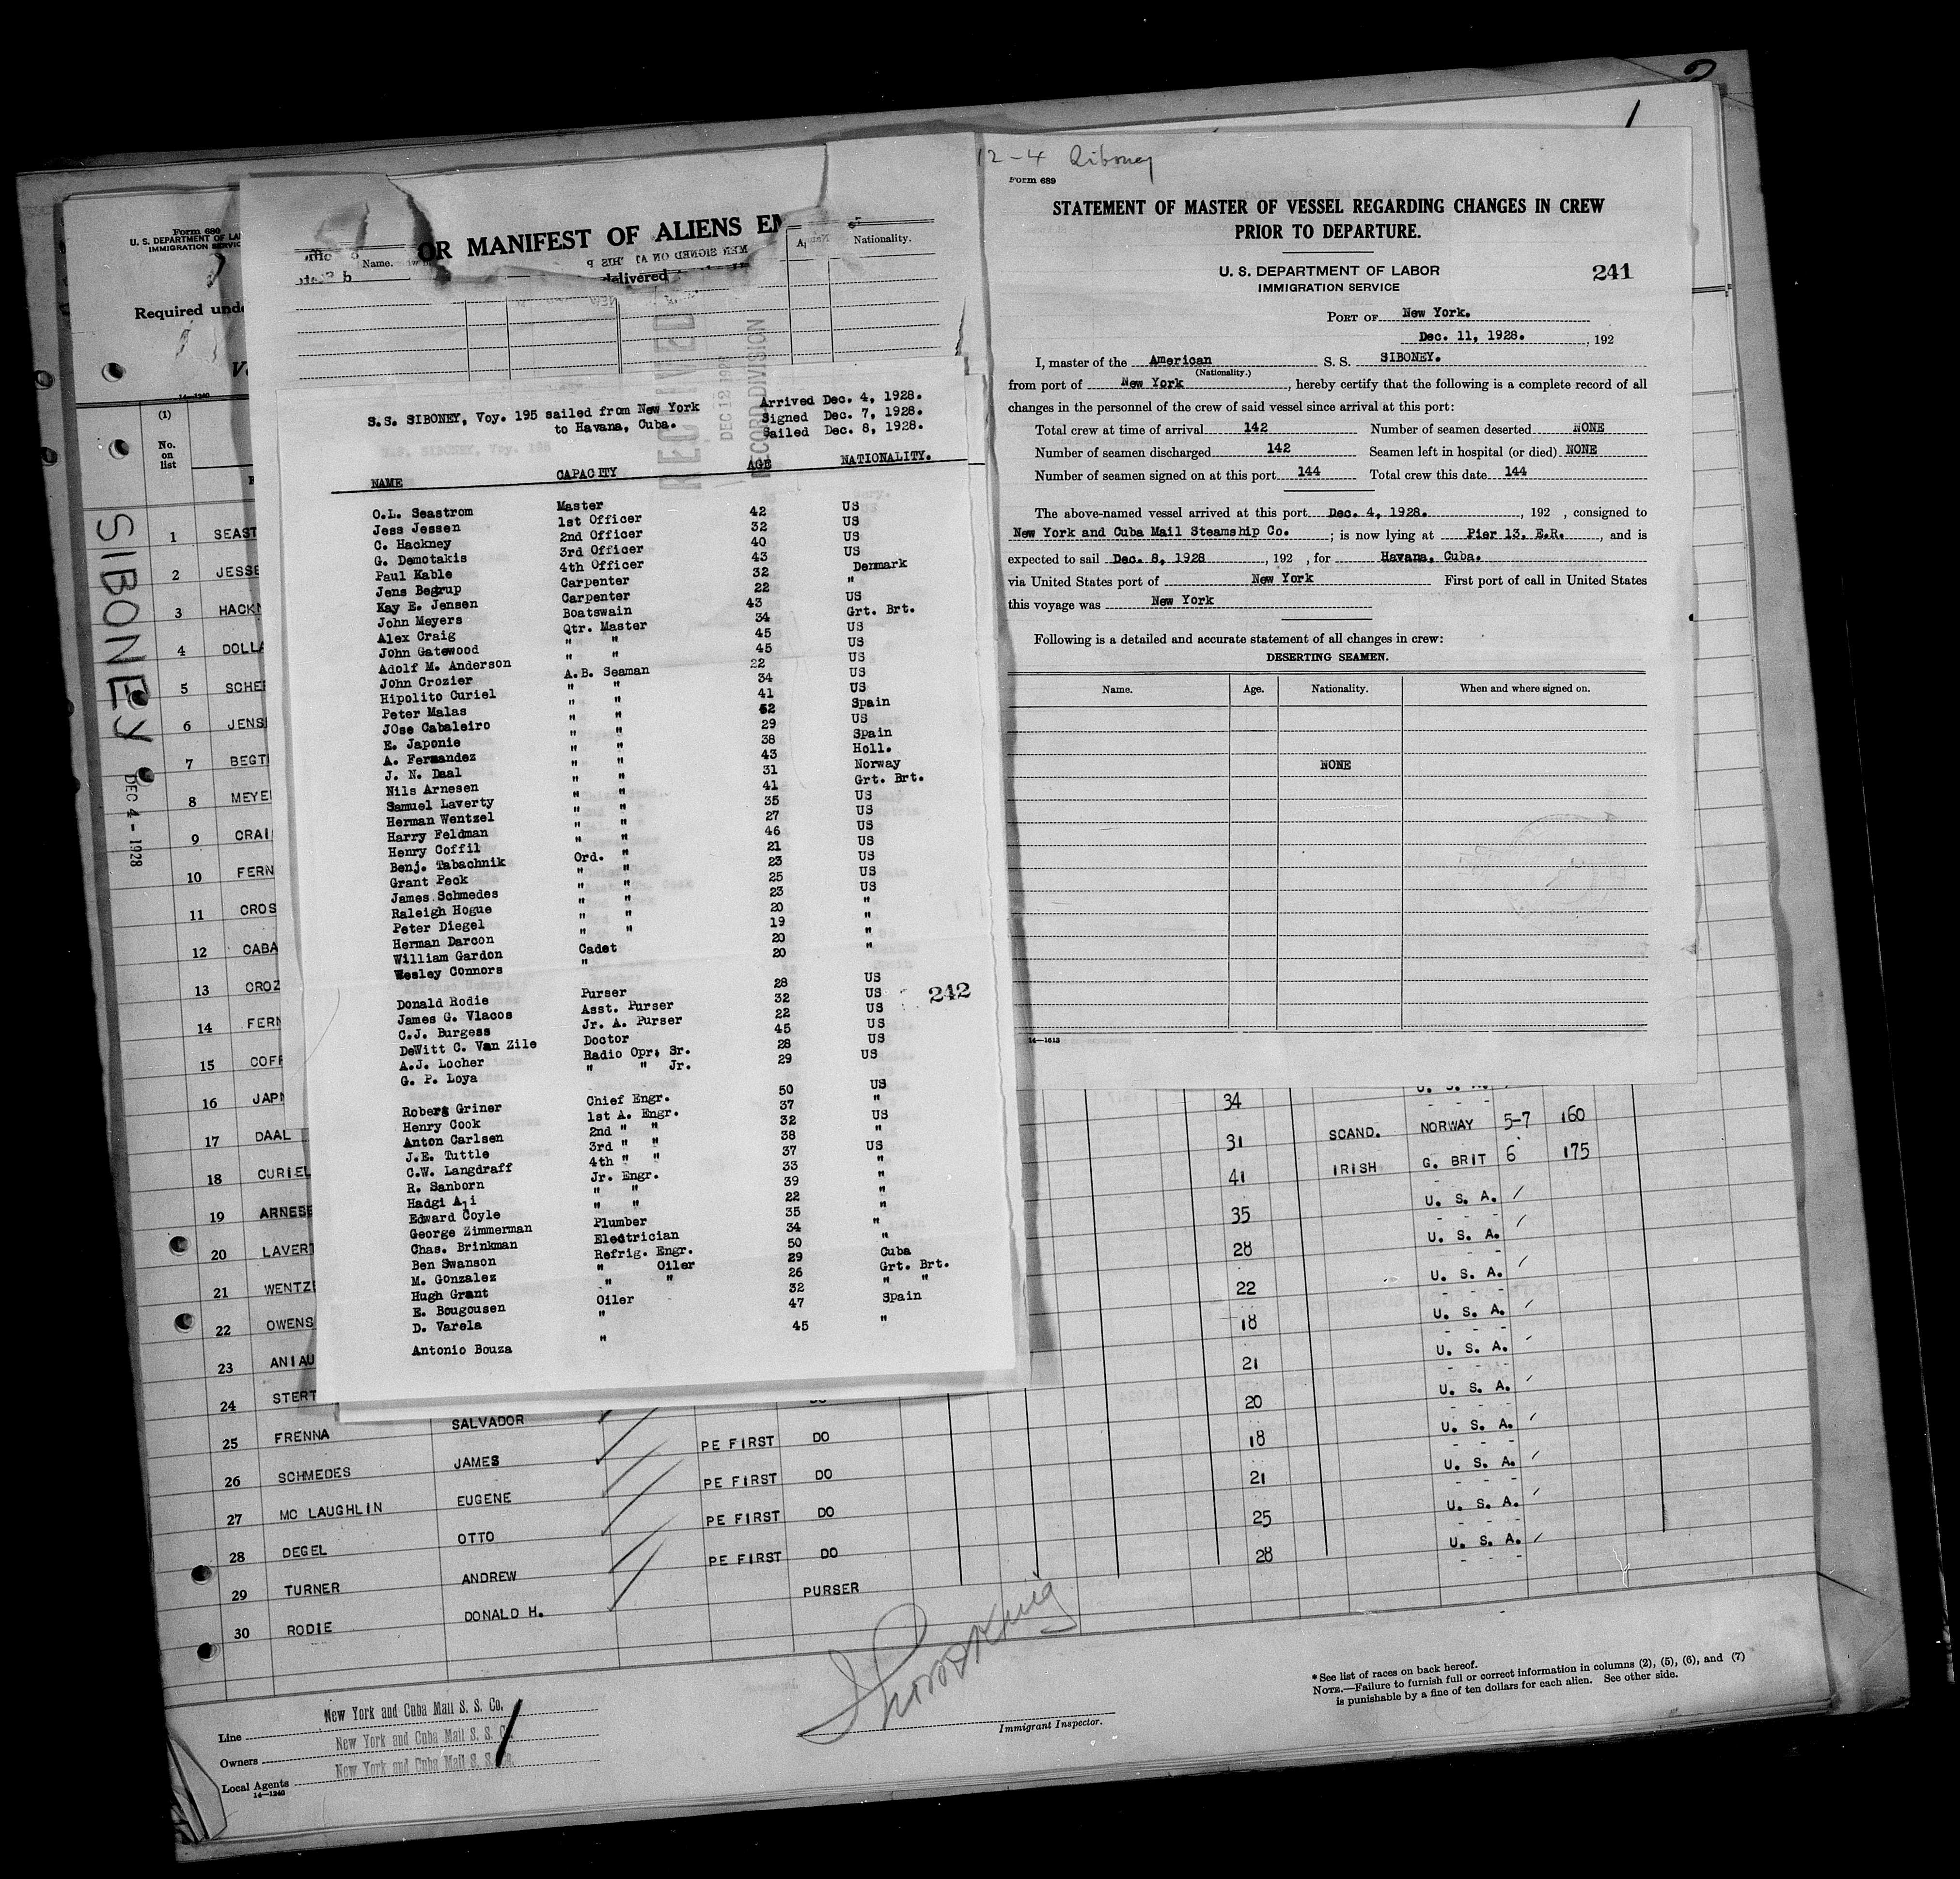 2
1
12-4 Siboney
Form 689
STATEMENT OF MASTER OF VESSEL REGARDING CHANGES IN CREW
PRIOR TO DEPARTURE.
U. S. DEPARTMENT OF LABOR
IMMIGRATION SERVICE
241
PORT OF New York.
Dec. 11, 1928. , 192
I, master of the American S. S. SIBONEY.
(Nationality.)
from port of New York , hereby certify that the following is a complete record of all
changes in the personnel of the crew of said vessel since arrival at this port:
Total crew at time of arrival 142 Number of seamen deserted NONE
Number of seamen discharged 142 Seamen left in hospital (or died) NONE
Number of seamen signed on at this port 144 Total crew this date 144
The above-named vessel arrived at this port Dec. 4, 1928. , 192 , consigned to
New York and Cuba Mail Steamship Co. ; is now lying at Pier 13, E.R. , and is
expected to sail Dec. 8, 1928 , 192 , for Havana, Cuba.
via United States port of New York First port of call in United States
this voyage was New York
Following is a detailed and accurate statement of all changes in crew:
DESERTING SEAMEN.
Name. Age. Nationality. When and where signed on.
NONE
14—1613
Form 680
U. S. DEPARTMENT OF LA
IMMIGRATION SERVIC
Required unde
14—1240
OR MANIFEST OF ALIENS EM
Name.
delivered
Nationality.
RECEIVED
DEC 12 1928
RECORD DIVISION
S.S. SIBONEY, Voy. 195 sailed from New York
to Havana, Cuba.
Arrived Dec. 4, 1928.
Signed Dec. 7, 1928.
Sailed Dec. 8, 1928.
NAME
O.L. Seastrom
Jess Jessen
C. Hackney
G. Demotakis
Paul Kable
Jens Begtrup
Kay E. Jensen
John Meyers
Alex Craig
John Gatewood
Adolf M. Anderson
John Crozier
Hipolito Curiel
Peter Malas
JOse Cabaleiro
E. Japonie
A. Fernandez
J. N. Daal
Nils Arnesen
Samuel Laverty
Herman Wentzel
Harry Feldman
Henry Coffil
Benj. Tabachnik
Grant Peck
James Schmedes
Raleigh Hogue
Peter Diegel
Herman Darcon
William Gardon
Wesley Connors
Donald Rodie
James G. Vlacos
C.J. Burgess
DeWitt C. Van Zile
A.J. Locher
G. P. Loya
Robert Griner
Henry Cook
Anton Carlsen
J.E. Tuttle
C.W. Langdraff
R. Sanborn
Hadgi Ali
Edward Coyle
George Zimmerman
Chas. Brinkman
Ben Swanson
M. Gonzalez
Hugh Grant
E. Bougousen
D. Varela
Antonio Bouza
CAPACITY
Master
1st Officer
2nd Officer
3rd Officer
4th Officer
Carpenter
Carpenter
Boatswain
Qtr. Master
" "
" "
A.B. Seaman
" "
" "
" "
" "
" "
" "
" "
" "
" "
" "
" "
Ord. "
" "
" "
" "
" "
" "
Cadet
"
Purser
Asst. Purser
Jr. A. Purser
Doctor
Radio Opr. Sr.
" " Jr.
Chief Engr.
1st A. Engr.
2nd " "
3rd " "
4th " "
Jr. Engr.
" "
" "
Plumber
Electrician
Refrig. Engr.
" Oiler
" "
Oiler
"
"
AGE
42
32
40
43
32
22
43
34
45
45
22
34
41
52
29
38
43
31
41
35
27
46
21
23
25
23
20
19
20
20
28
32
22
45
28
29
50
37
32
38
37
33
39
22
35
34
50
29
26
32
47
45
NATIONALITY.
US
US
US
US
Denmark
"
US
Grt. Brt.
US
US
US
US
US
Spain
US
Spain
Holl.
Norway
Grt. Brt.
US
US
US
US
US
US
US
"
"
"
"
US
US
US
US
US
US
US
"
US
"
US
"
"
"
"
"
"
Cuba
Grt. Brt.
" "
Spain
"
242
SIBONEY
DEC 4 - 1928
(1)
No.
on
list
1 SEAST
2 JESSE
3 HACKN
4 DOLLA
5 SCHE
6 JENS
7 BEGT
8 MEYE
9 CRAI
10 FERN
11 CROS
12 CABA
13 CROZ
14 FERN
15 COFF
16 JAPN
17 DAAL
18 CURIEL
19 ARNESE
20 LAVERT
21 WENTZE
22 OWENS
23 ANIAU
24 STERT
25 FRENNA SALVADOR
26 SCHMEDES JAMES PE FIRST DO
27 MC LAUGHLIN EUGENE PE FIRST DO
28 DEGEL OTTO PE FIRST DO
29 TURNER ANDREW PE FIRST DO
30 RODIE DONALD H. PURSER
34
31 SCAND. NORWAY 5-7 160
41 IRISH G. BRIT 6 175
35 U. S. A.
28 U. S. A.
22 U. S. A.
18 U. S. A.
21 U. S. A.
20 U. S. A.
18 U. S. A.
21 U. S. A.
25 U. S. A.
28 U. S. A.
Line New York and Cuba Mail S. S. Co.
Owners New York and Cuba Mail S. S. Co.
Local Agents New York and Cuba Mail S. S. Co.
14—1240
Immigrant Inspector.
*See list of races on back hereof.
NOTE.—Failure to furnish full or correct information in columns (2), (5), (6), and (7)
is punishable by a fine of ten dollars for each alien. See other side.